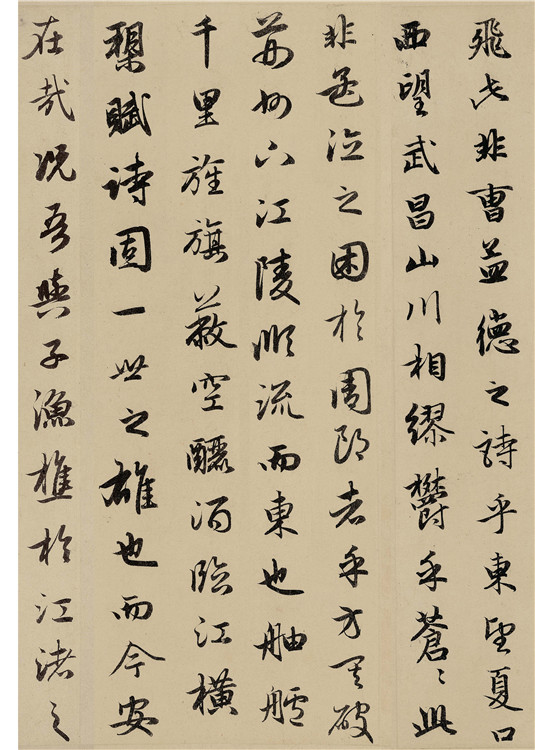 飛此非曹孟德之詩乎東望夏口
西望武昌山川相繆鬱乎蒼〻此
非孟德之困於周郎者乎方其破
荊州下江陵順流而東也舳艫
千里旌旗蔽空釃酒臨江橫
槊賦詩固一世之雄也而今安
在哉況吾與子漁樵於江渚之